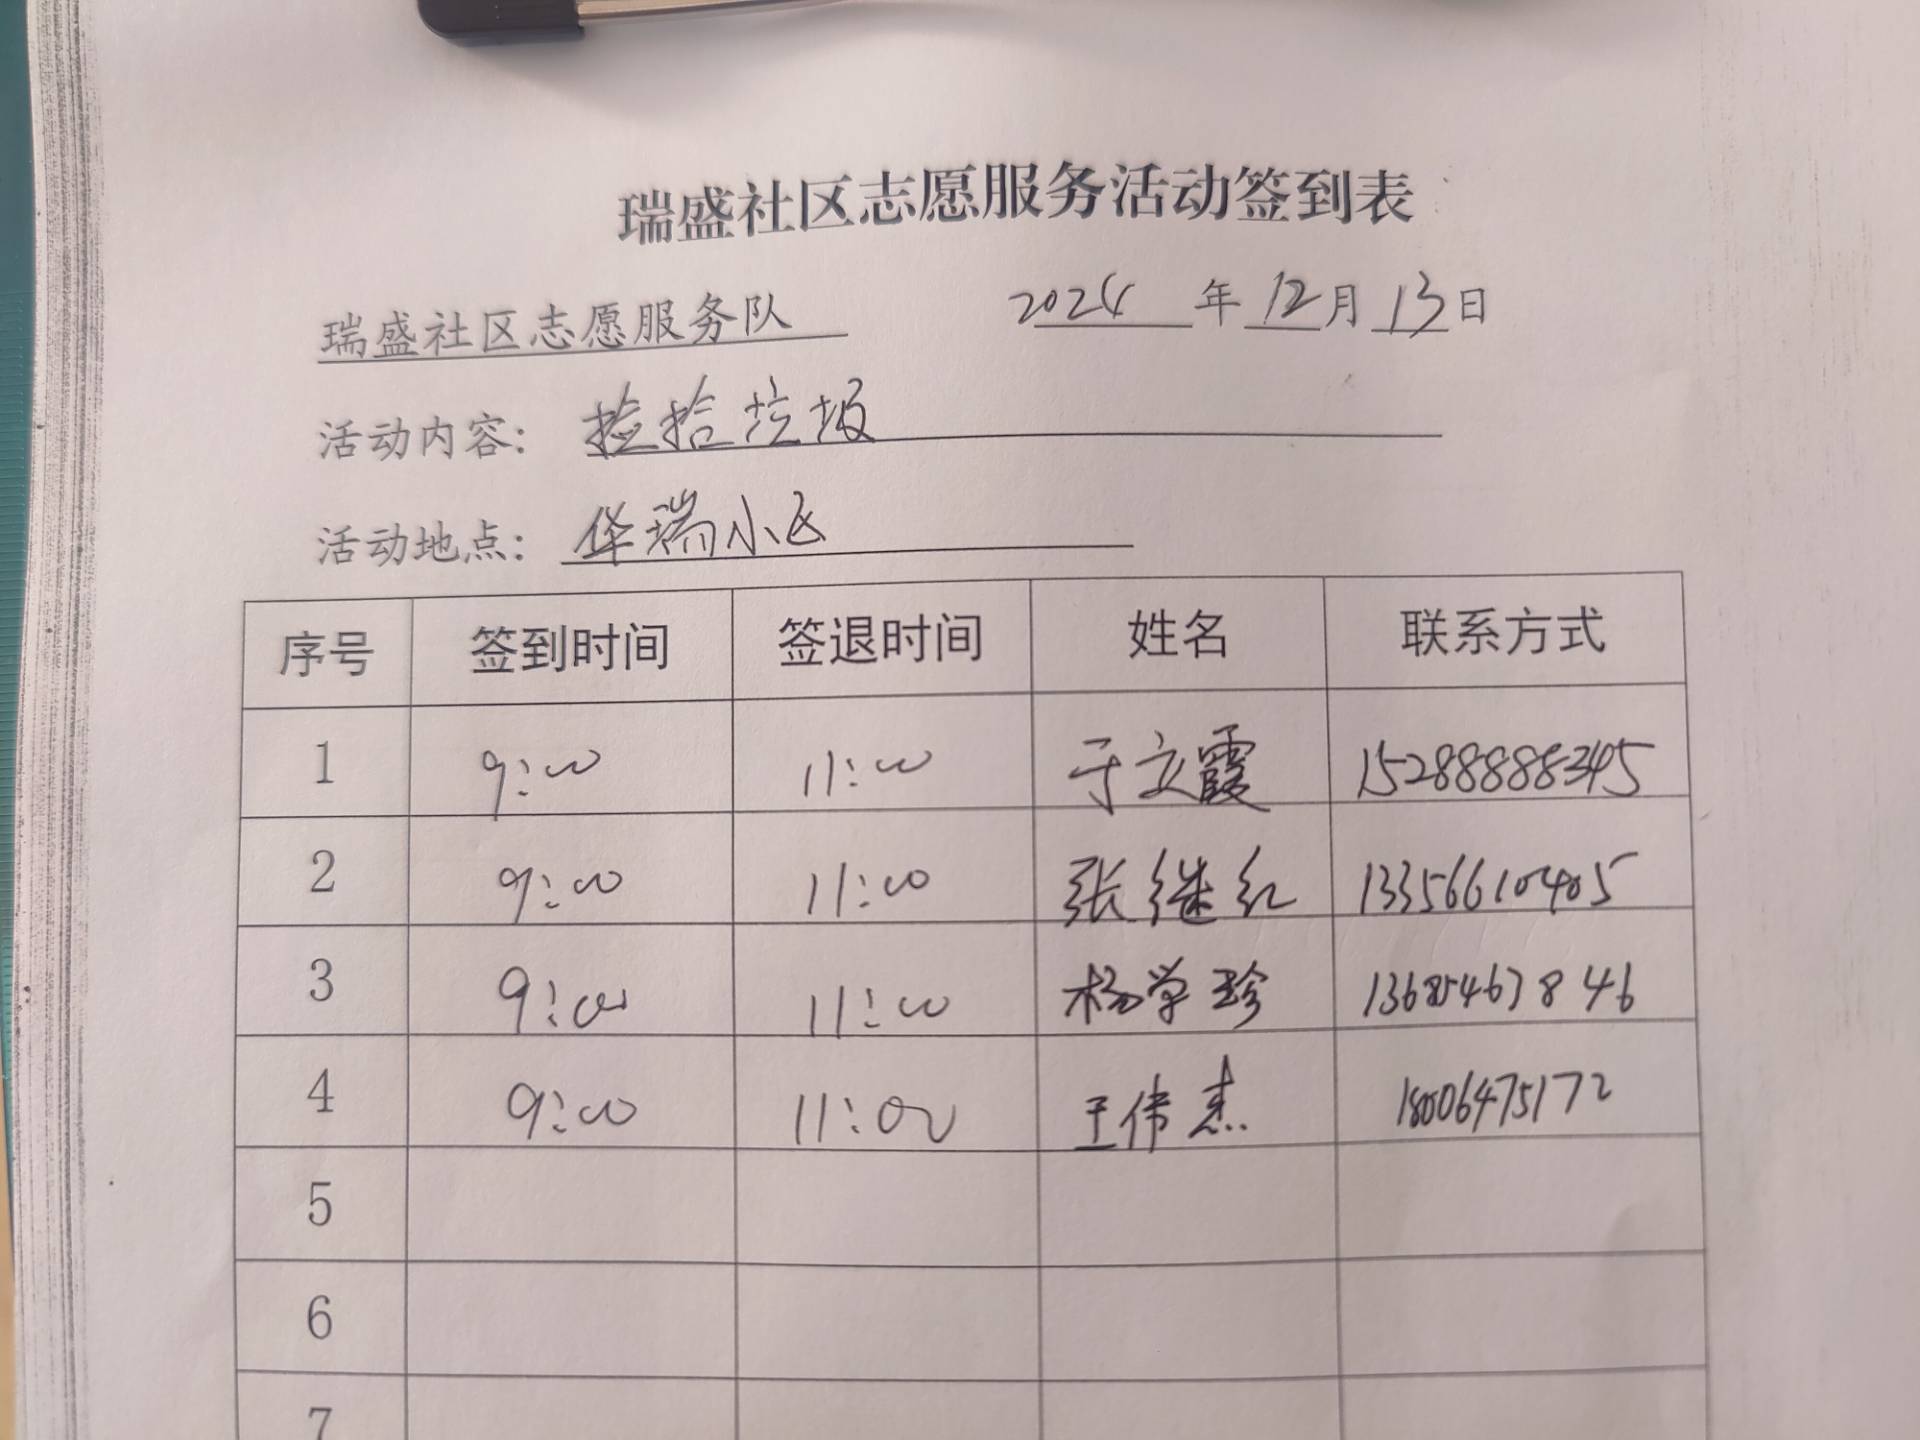 瑞盛社区志愿服务活动签到表
瑞盛社区志愿服务队 2024 年 12 月 13 日
活动内容: 捡拾垃圾
活动地点: 华瑞小区
序号 签到时间 签退时间 姓名 联系方式
1 9:00 11:00 于立霞 15288888345
2 9:00 11:00 张继红 13356610405
3 9:00 11:00 杨学珍 13685467846
4 9:00 11:00 王伟杰 18006475172
5
6
7